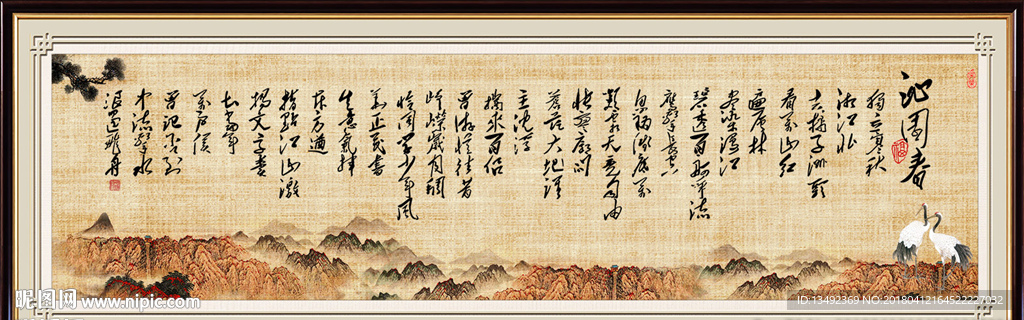 沁園春
独立寒秋
湘江北
去橘子洲頭
看万山红
遍層林
尽染漫江
碧透百舸争流
鹰击长空
鱼翔浅底万
類霜天竞自由
怅寥廓问
蒼茫大地谁
主沈浮
携来百侣
曾游忆往昔
峥嵘歲月稠
恰同学少年風
華正茂書
生意氣揮
斥方遒
指點江山激
揚文字糞
土当年
万户侯
曾記否到
中流擊水
浪遏飛舟
昵图网 www.nipic.com
ID:13492369 NO:20180412164522227032